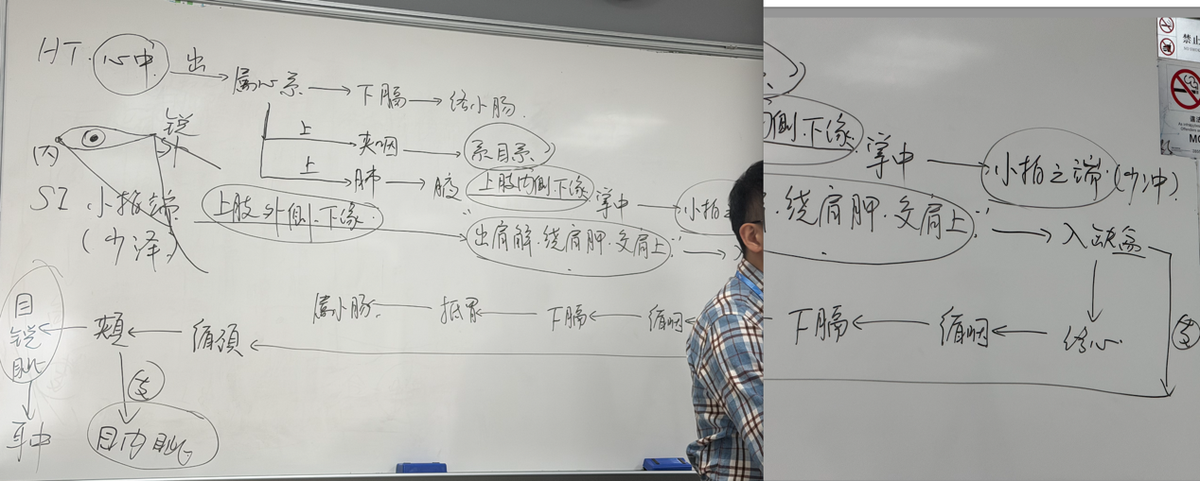 HT. 心中 出→ 属心系 → 下膈 → 络小肠.
上 → 夹咽 → 系目系
上 → 肺 → 腋 上肢内侧下缘 掌中 → 小指之
锐
外
内
SI 小指端 上肢外侧下缘 → 出肩解.绕肩胛.交肩上 →
(少泽)
属小肠 ← 抵胃 ← 下膈 ← 循咽 ←
目锐眦 ← 颊 ← 循颈 ←
支
耳中 目内眦
内侧下缘 掌中 → 小指之端.(少冲)
.绕肩胛.交肩上 → 入缺盆
支
下膈 ← 循咽 ← 络心
禁止